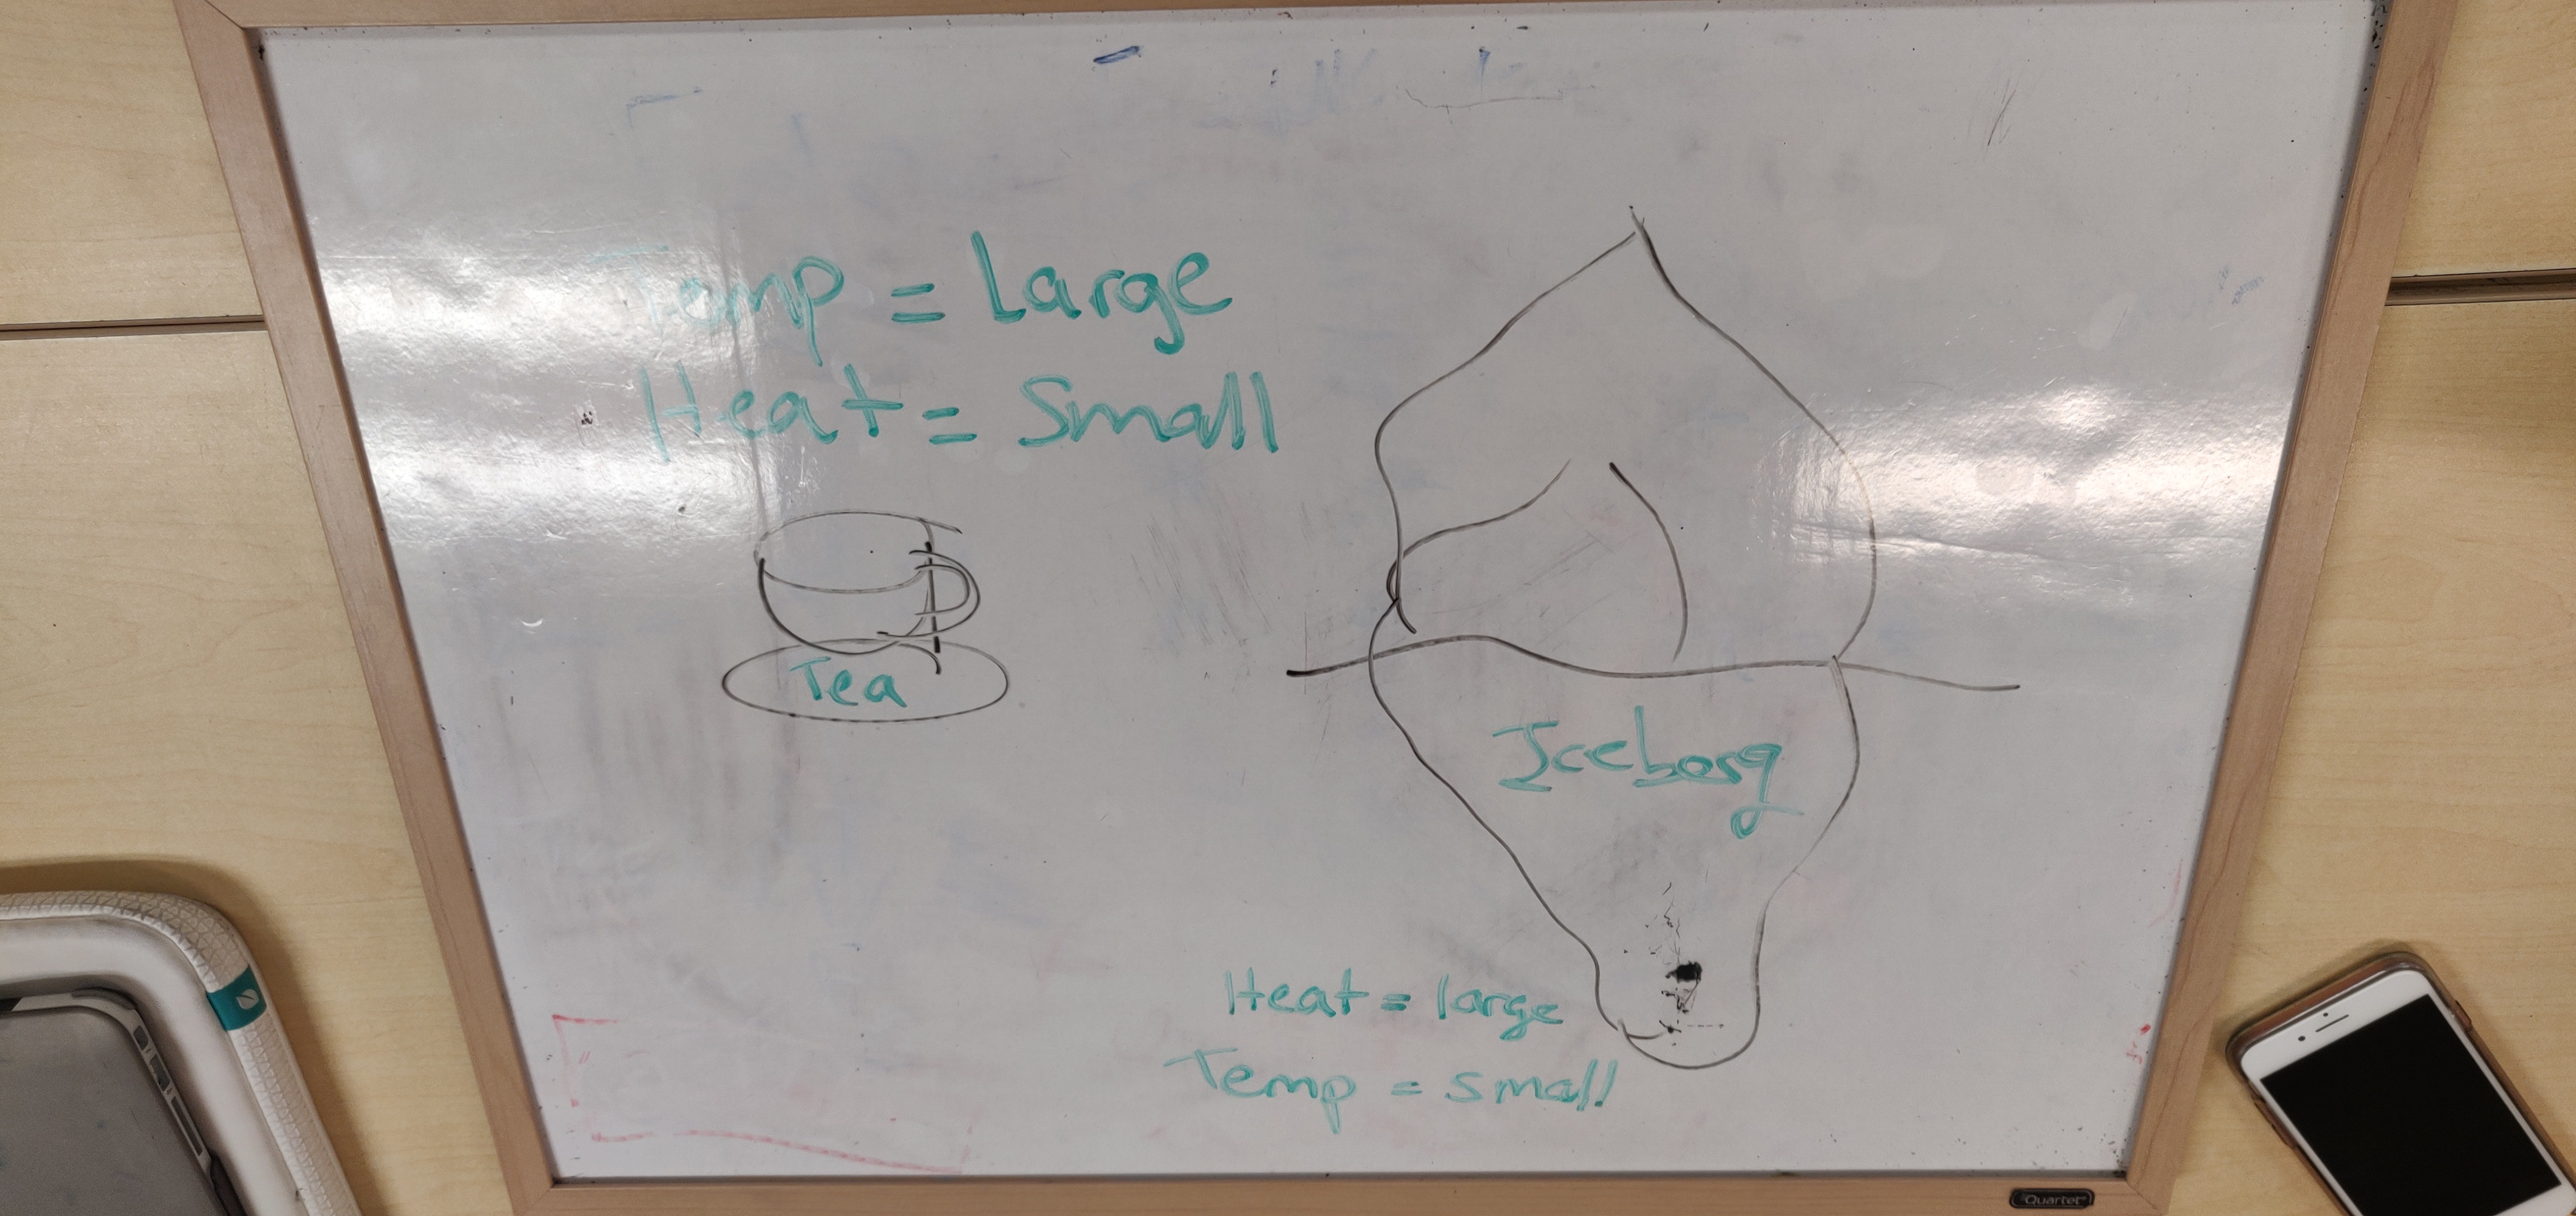 Temp = Large
Heat = Small
Tea
Iceberg
Heat = large
Temp = small
Quartet